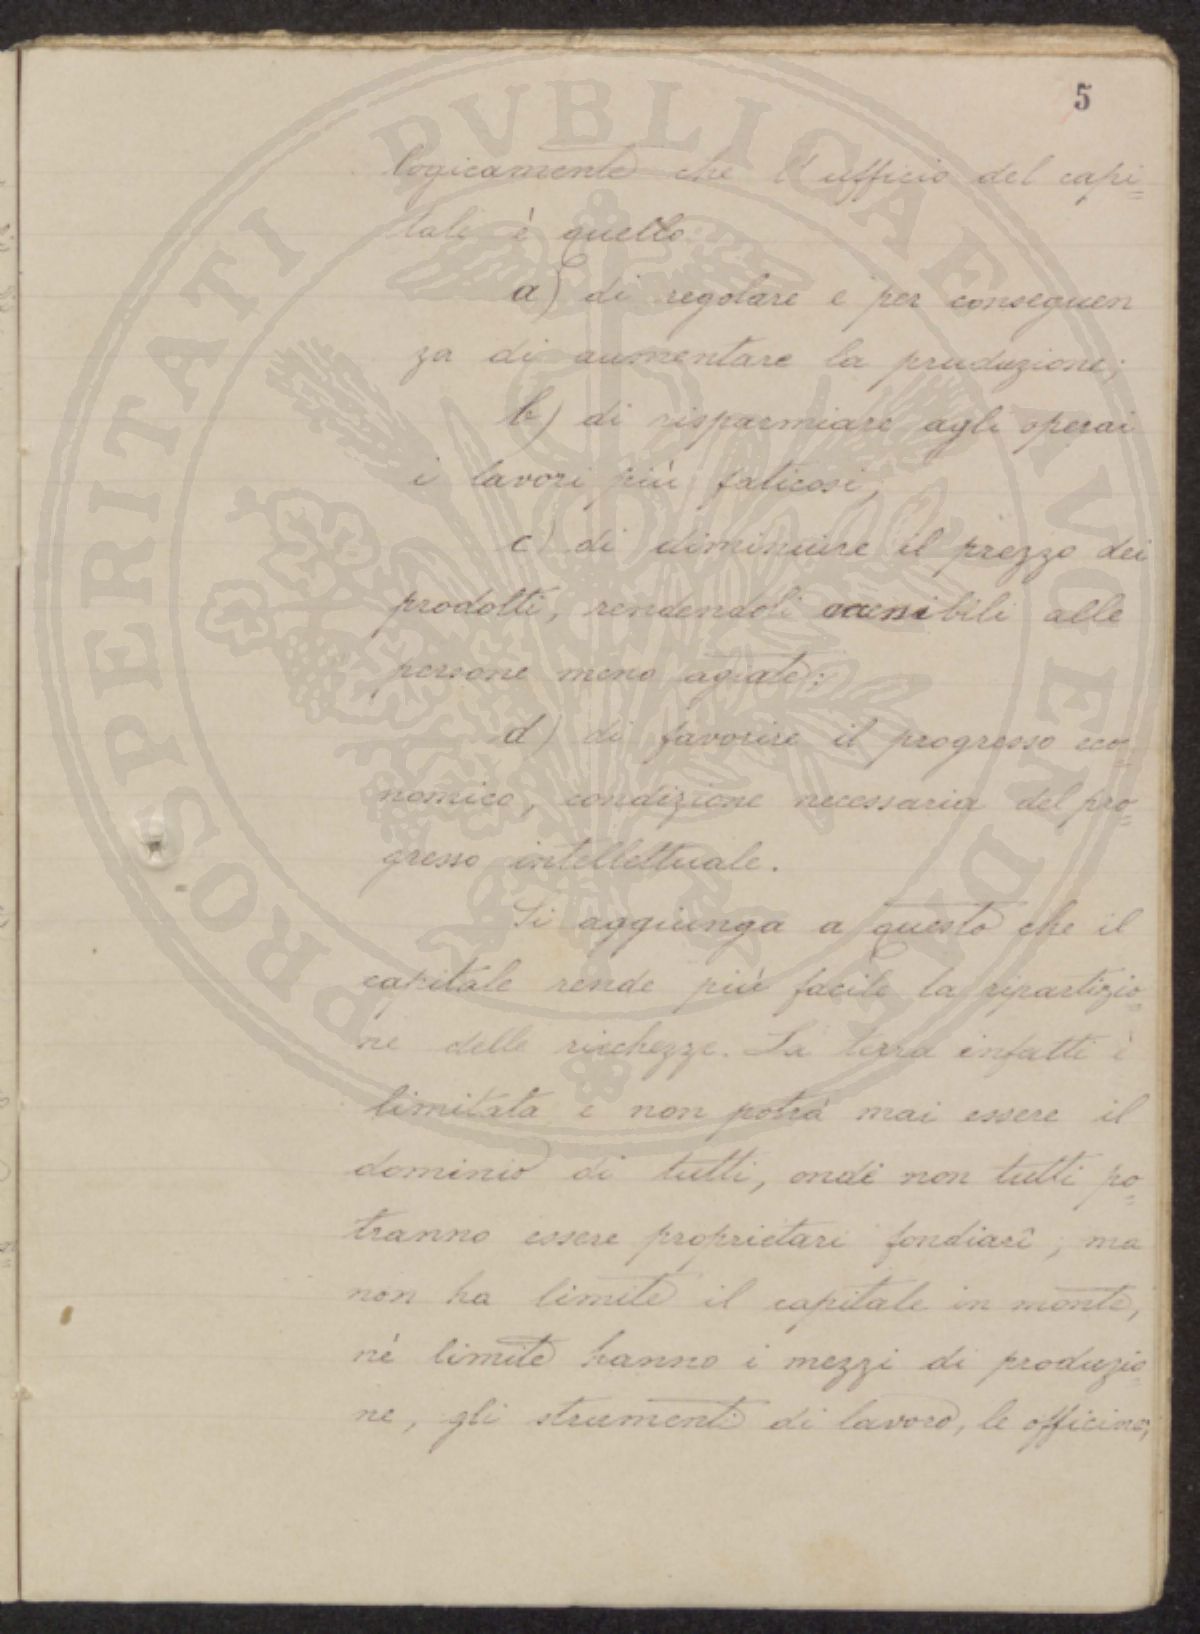 5
logicamente che l'ufficio del capi=
tale è quello:
a) di regolare e per conseguen
za di aumentare la pruduzione;
b) di risparmiare agli operai
i lavori più faticosi;
c) di diminuire il prezzo dei
prodotti, rendendoli accessibili alle
persone meno agiate:
d) di favorire il progresso eco=
nomico, condizione necessaria del pro=
gresso intellettuale.
Si aggiunga a questo che il
capitale rende più facile la ripartizio=
ne delle ricchezze. La terra infatti è
limitata e non potrà mai essere il
dominio di tutti, onde non tutti po=
tranno essere proprietari fondiarî, ma
non ha limite il capitale in monte,
nè limite hanno i mezzi di produzio=
ne, gli strumenti di lavoro, le officine,
PROSPERITATI PVBLICAE AVGENDAE